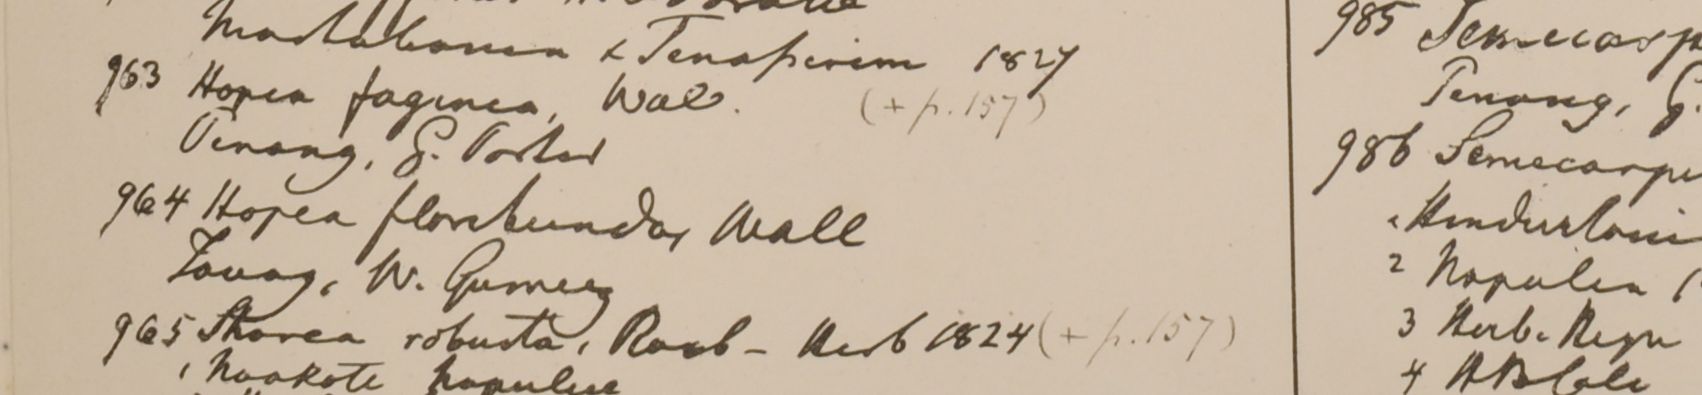 Martabania & Tenasserim 1827
963 Hopea faginea, Wall. (+ p. 157)
Penang, G. Porter
964 Hopea floribunda, Wall
Tavoy, W. Gomez
965 Shorea robusta, Roxb - Herb 1824 (+ p. 157)
1 Noakote Napulia
985 Semecarp
Penang, G.
986 Semecarpu
1 Hindustani
2 Napulia
3 Herb. Heyn
4 HB Calc